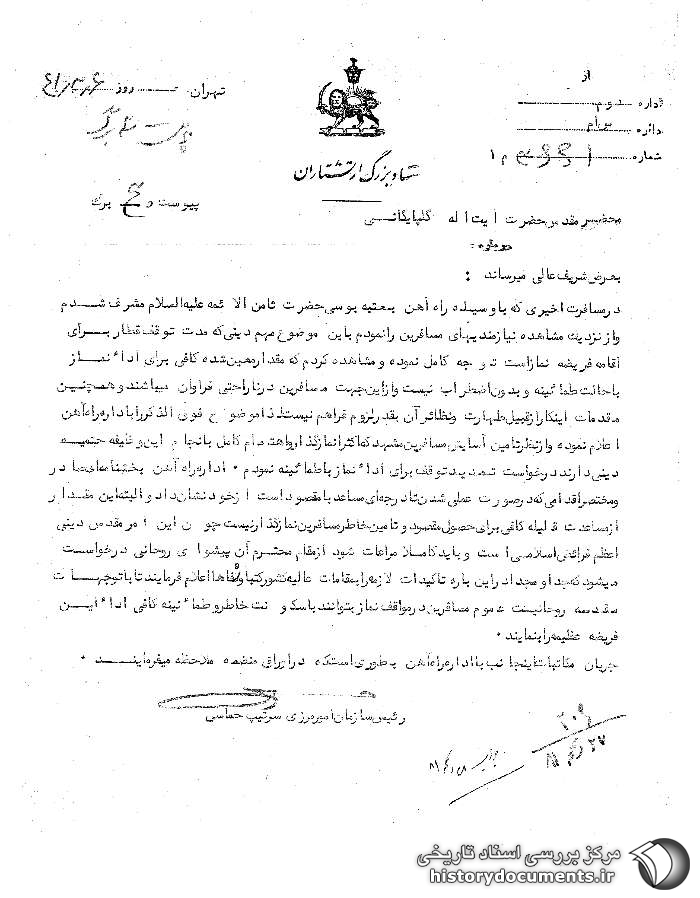 از
اداره دوم
دائره سرام
شماره م ۱
ستاد بزرگ ارتشتاران
تهران روز
پیوست برگ
محضر مقدس حضرت آیت اله گلپایگانی
بعرض شریف عالی میرساند :
در مسافرت اخیری که با وسیله راه آهن بعتبه بوسی حضرت ثامن الائمه علیه السلام مشرف شدم
و از نزدیک مشاهده نیازمندیهای مسافرین را نمودم باین موضوع مهم دینی که مدت توقف قطار برای
اقامه فریضه نماز است توجه کامل نموده و مشاهده کردم که مقدار معین شده کافی برای اداء نماز
باحالت طمأنینه و بدون اضطراب نیست و از این جهت مسافرین در ناراحتی فراوان میباشند و همچنین
مقدمات اینکار از قبیل طهارت و نظائر آن بقدر لزوم فراهم نیست لذا موضوع فوق الذکر را باداره راه آهن
اعلام نموده و از نظر تامین آسایش مسافرین مشهد که اکثرا نمازگذار و اهتمام کامل بانجام این وظیفه حتمیه
دینی دارند درخواست تمدید توقف برای اداء نماز با طمأنینه نمودم ۰ اداره راه آهن بخشنامه امضا در
و مختصر اقدامی که در صورت عملی شدن تا درجه ای مساعد با مقصود است از خود نشان داد و البته این مقدار
از مساعدت قلیله کافی برای حصول مقصود و تامین خاطر مسافرین نمازگذار نیست چون این امر مقدس دینی
اعظم فرائض اسلامی است و باید کاملا مراعات شود از مقام محترم آن پیشوای روحانی درخواست
میشود که جدا و مجددا در این باره تاکیدات لازمه را بمقامات عالیه کشور کتبا و شفاها اعلام فرمایند تا با توجهات
مقدسه روحانیت عموم مسافرین در مواقف نماز بتوانند با سکونت خاطر و طمأنینه کافی اداء این
فریضه عظیمه را بنمایند ۰
جریان مکاتبات اینجانب با اداره راه آهن بطوری استکه در اوراق منضمه ملاحظه میفرمایند ۰
رئیس سازمان امیر مرزی سرتیپ حماسی
مرکز بررسی اسناد تاریخی
historydocuments.ir